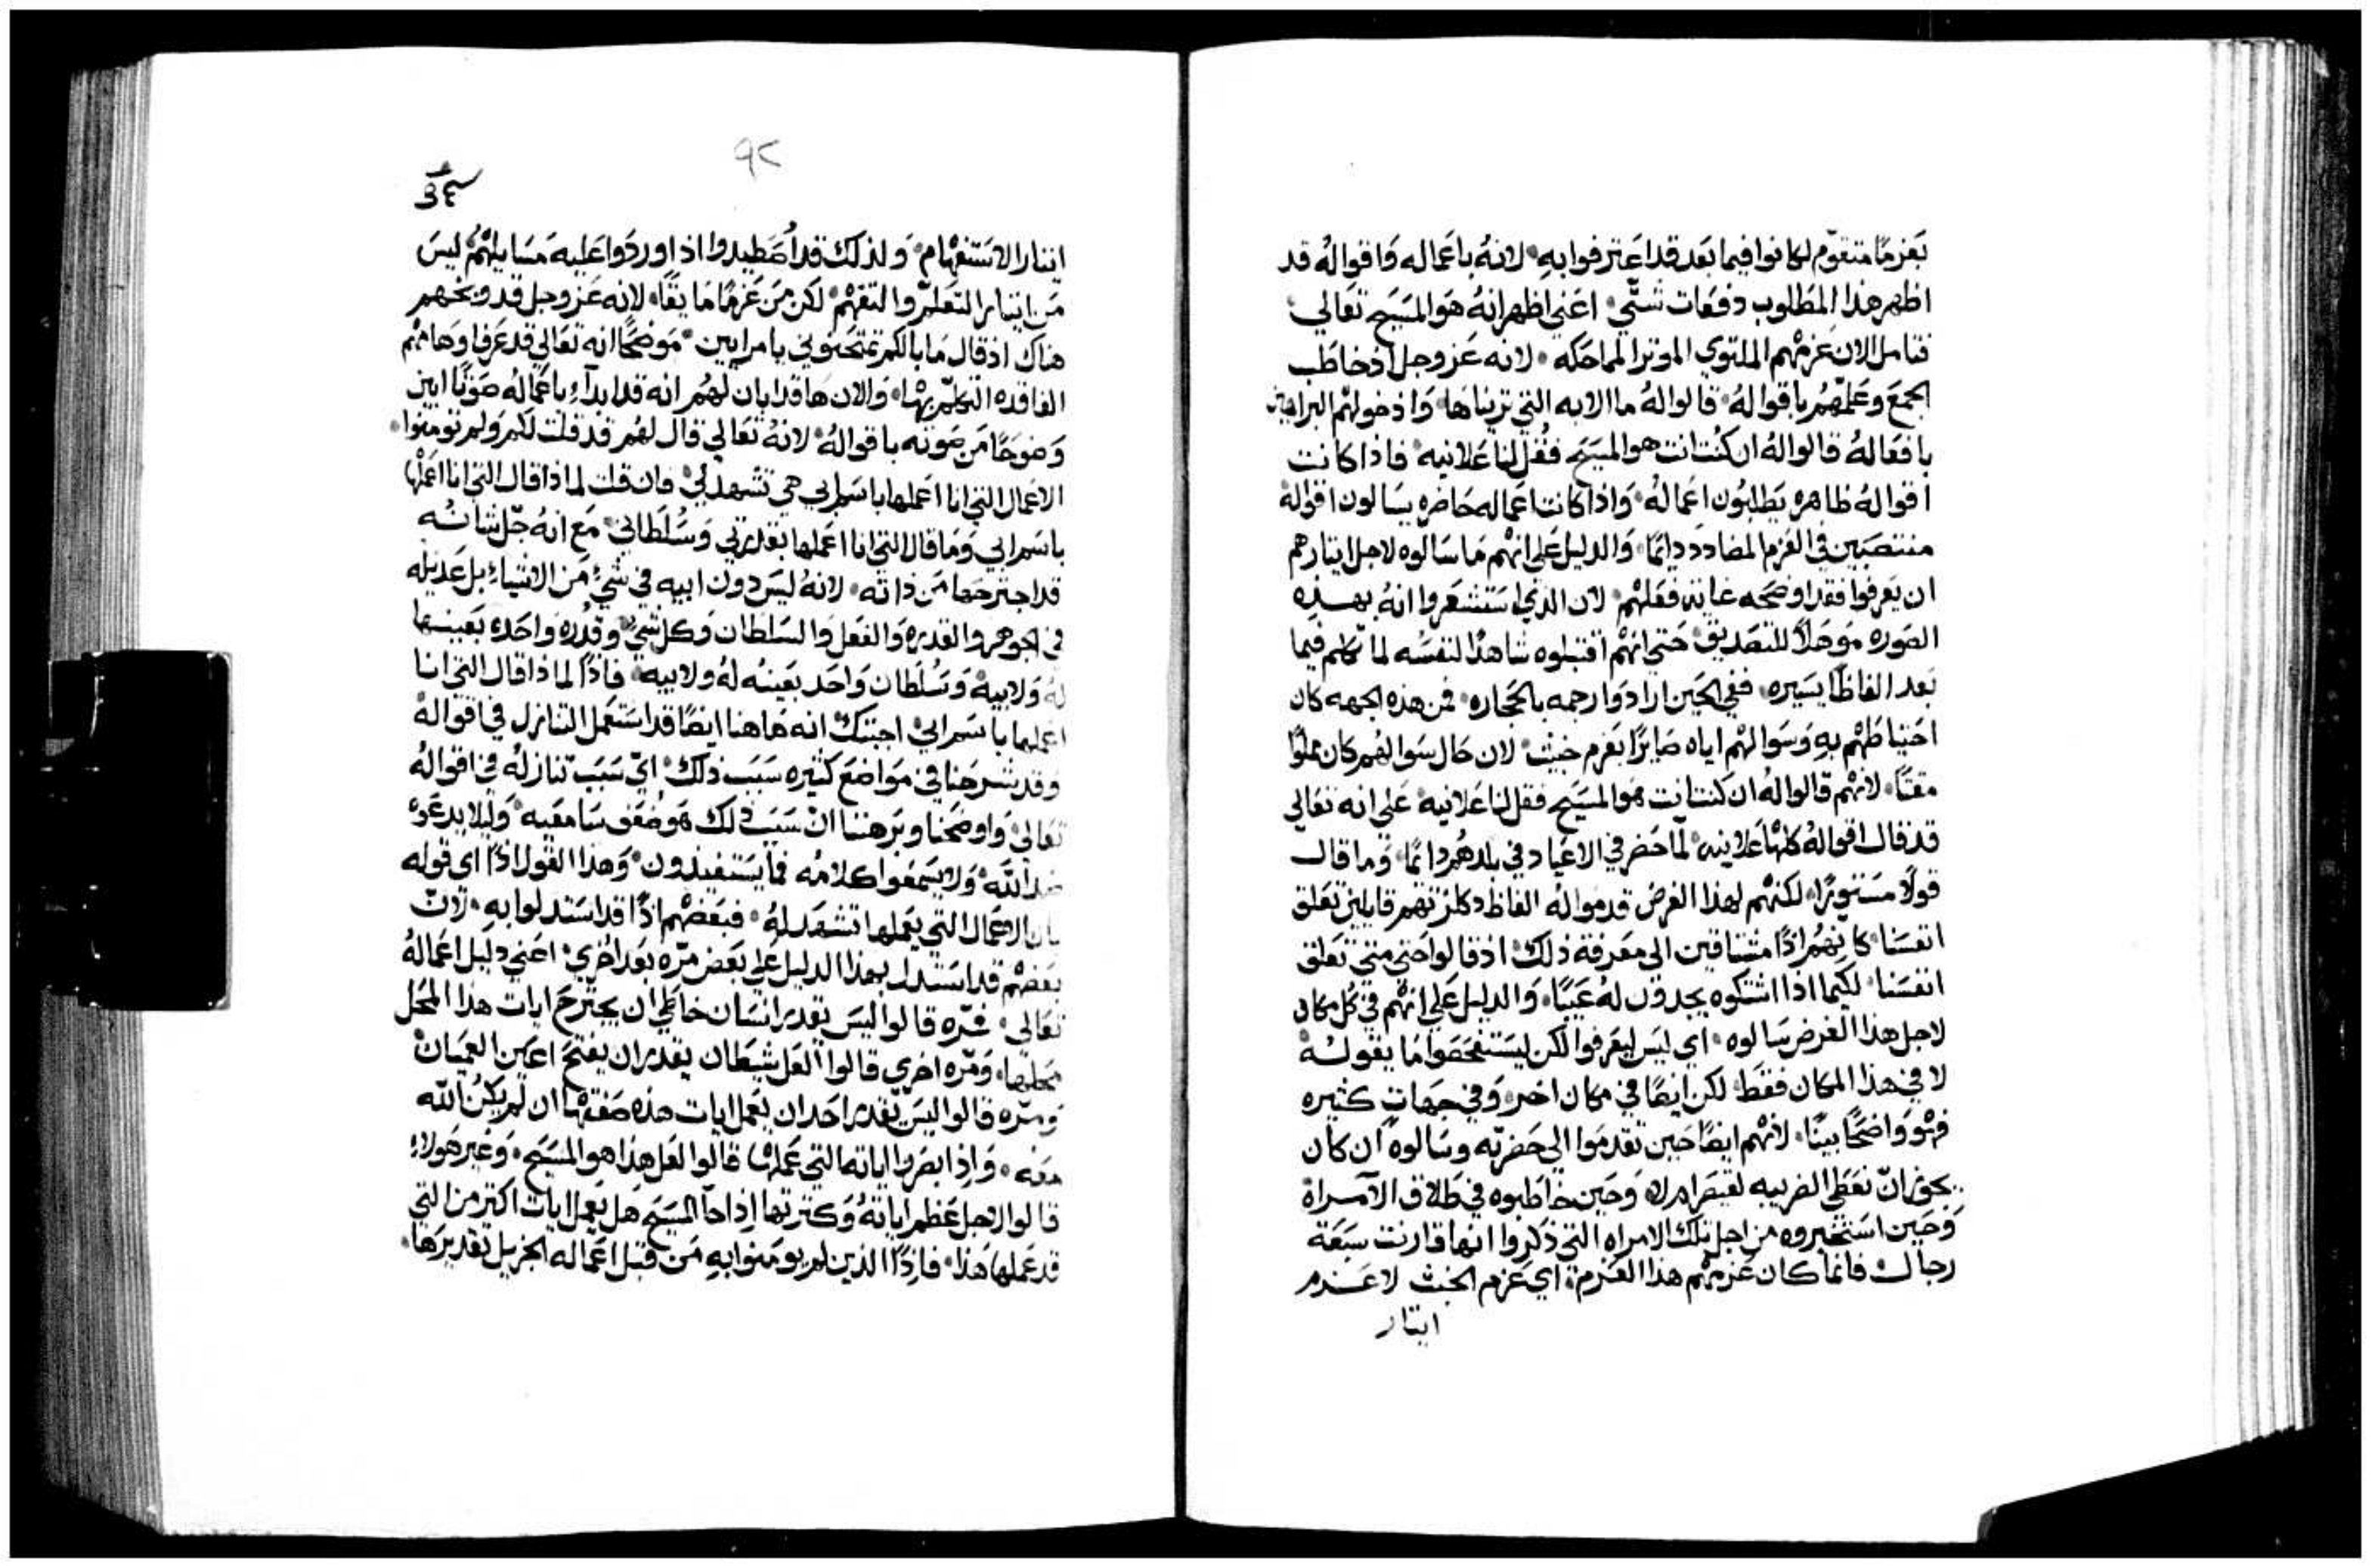 بعزمًا متقوّم لكانوا فيما بعد قد اعترفوا به لانهُ باعماله واقوالهُ قد
اظهر هذا المطلوب دفعات شتّي اعني اظهر انهُ هو المسيح تعالي
فتامل الان عزمهم الملتوي الموثر المماحكه لانه عز وجل اذ خاطب
الجمع وعلمهم باقوالهُ قالوا لهُ ما الايه التي ترينَاها واذ خولهم البراهين
بافعالهُ قالوا لهُ ان كنت انت هو المسيح فقُل لنا علانيه فاذا كانت
اقوالهُ ظاهره يطلبُون اعمالهُ واذا كانت اعماله حاضره يسالون اقوالهُ
منتصبين في العزم المضادد دايمًا والدليل علي انهم ما سالوه لاجل ايتارهم
ان يعرفوا فقد اوضحه غاية فعلهم لان الذي استشعروا انهُ بهذه
الصوره موهلاً للتصديق حتي انهم اقتبلوه شاهدًا لنفسُه لما تكلم فيما
بعد الفاظًا يسيره ففي الحين ارادوا رجمه بالحجاره فمن هذه الجهه كان
احتياطهم به وسوالهم اياه صايرًا بعزم خبيث لان حال سوالهم كان مملوًا
مقتًا لانهم قالوا لهُ ان كنت انت هو المسيح فقل لنا علانيه علي انه تعالي
قد قال اقوالهُ كلها علانيه لما حضر في الاعياد في بلدهُم دايمًا وما قال
قولًا مستورًا لكنهم لهذا الغرض قدموا له الفاظ قايلين تعلق
انفسنا كانهُم اذًا مشتاقين الي معرفة ذلك اذ قالوا حتي متي تعلق
انفسنا لكيما اذا اشتكوه يجدون لهُ عيبًا والدليل علي انهم في كُل مكان
لاجل هذا الغرض سالوه اي ليس ليعرفوا لكن ليستفحصوا ما يقولهُ
لا في هذا المكان فقط لكن ايضًا في مكان اخر وفي جهات كثيره
فهُو واضحًا بينًا لانهم ايضًا حين تقدموا الي حضرته وسالوه ان كان
يجوز ان نعطي الضريبه لقيصر ام لا وحين خاطبوه في طلاق الامراة
وحين استخبروه من اجل تلك الامراه التي ذكروا انها قارنت سبعة
رجال فانما كان عزمهم هذا العزم اي عزم الخبث لا عزم
ايتار
٩٢
ايتار الاستفهام ولذلك قد اُصطيدوا اذ اوردوا عليه مسايلهُم ليس
من ايتار التعلم والتفهم لكن من عزمًا مايقًا لانه عز وجل قد وبخهم
هناك اذ قال ما بالكم تمتحنوني يا مرايين موضحًا انه تعالي قد عرف اوهامهم
الفاقده التكلّم بها والان ها قد ابان لهُم انه قد ابداء باعمالُه صوتًا ابين
وضوحًا من صوته باقوالهُ لانهُ تعالي قال لهُم قد قلت لكم ولم تومنوا
الاعمال التي انا اعملها باسم ابي هي تشهد لي فان قلت لما ذا قال التي انا اعملها
باسم ابي وما قال التي انا اعملها بقدرتي وسُلطاني مع انهُ جلّ شانُه
قد اجترحها من ذاته لانهُ ليس دون ابيه في شيءٍ من الاشياء بل عديله
في الجوهر والقدره والفعل والسلطان وكل شيٍ وقُدره واحده بعينها
لهُ ولابيهُ وسُلطان واحد بعينه لهُ ولابيه فاذًا لما ذا قال التي انا
اعملها باسم ابي اجبتك انه هاهنا ايضًا قد استعمل التنازل في اقوالهُ
وقد شرحنا في مواضع كثيره سبب ذلك اي سبب تنازلهُ في اقوالهُ
تعالي واوضحنا وبرهننا ان سبب ذلك هو ضُعف سامعيه وليلا يدعوهُ
ضد الله ولا يسمعوا كلامُه فما يستفيدون وهذا القول اذًا اي قوله
بان الاعمال التي يعملها تشهد لهُ فبعضهم اذًا قد استدلوا به لان
بعضهم قد استدل بهذا الدليل علي بعض مرّه بعد اخري اعني دليل اعمالهُ
تعالي فمرّه قالوا اليس يقدر انسان خاطي ان يجترح ايات هذا المحل
محلها ومرّه اخري قالوا العل شيطان يقدر ان يفتح اعين العميان
ومرّه قالوا ليس يقدر احد ان يعمل ايات هذه صفتها ان لم يكن الله
معه واذ ابصروا اياته التي عملها قالوا لعل هذا هو المسيح وغير هولاءِ
قالوا لاجل عظم اياتهُ وكثرتها اذا جا المسيح هل يعمل ايات اكثر من التي
قد عملها هذا فاذًا الذين لم يومنوا به من قبل اعماله الجزيل تقديرها